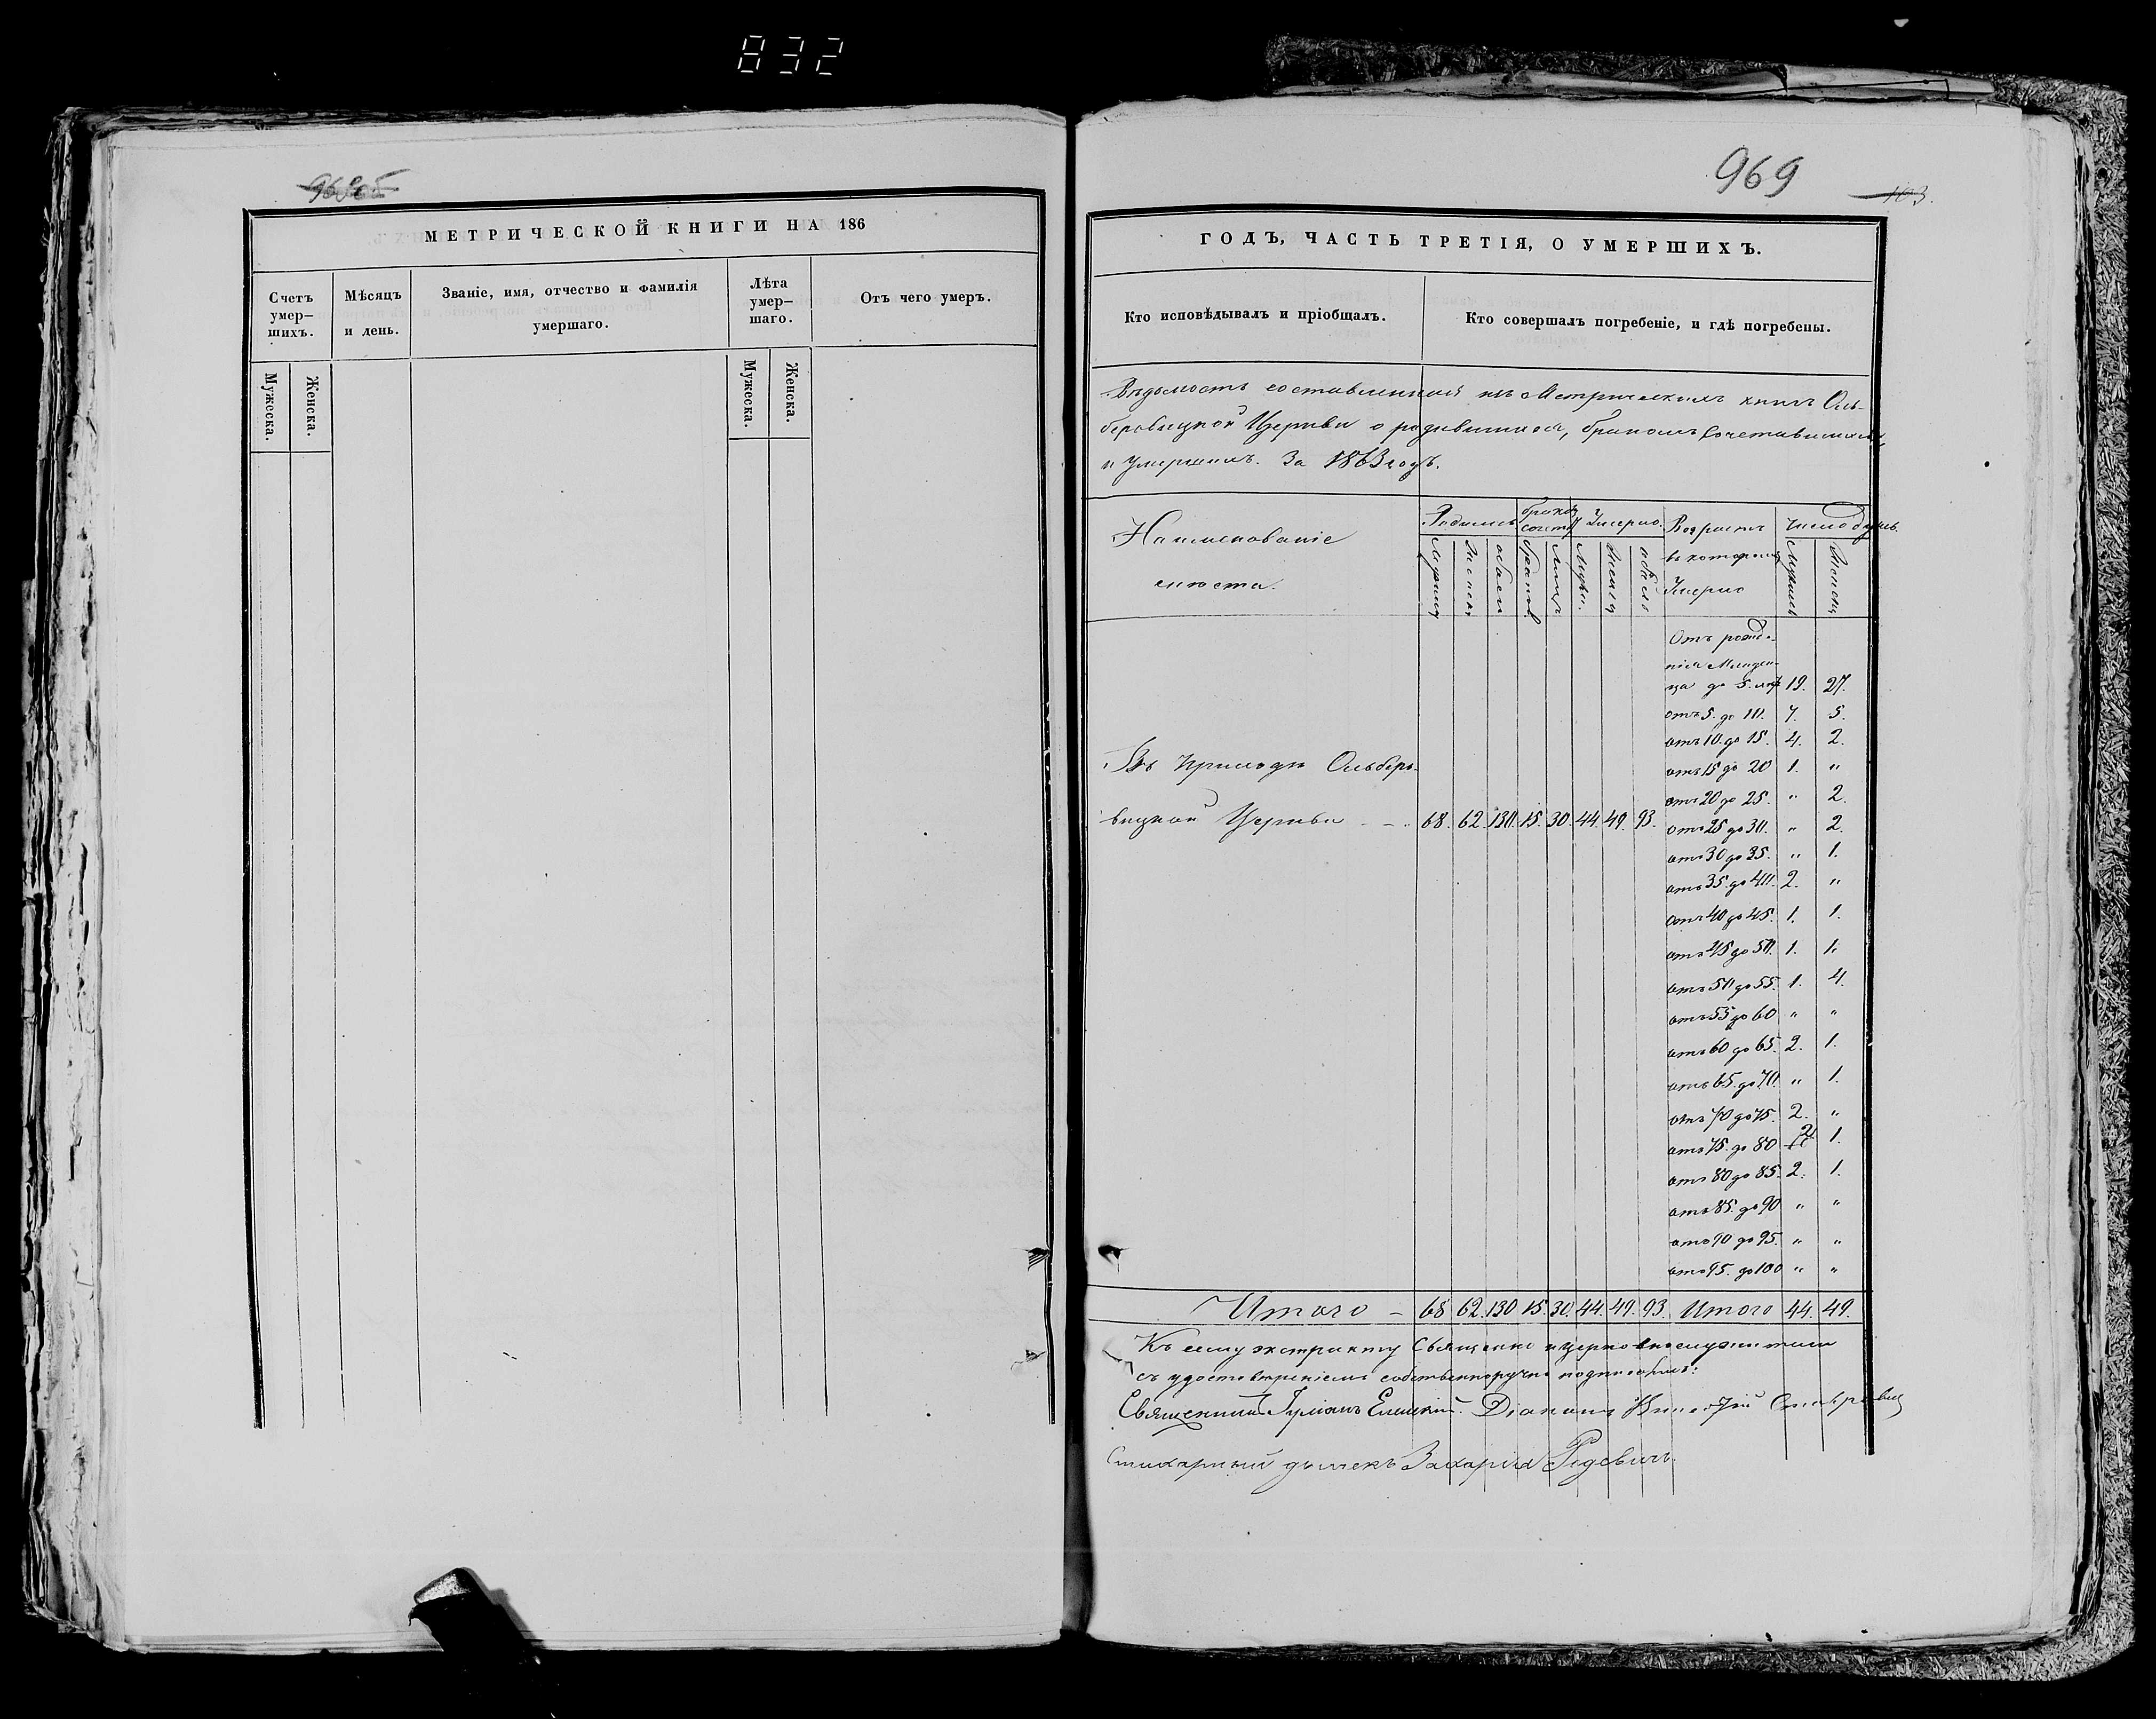 832
969
103.
МЕТРИЧЕСКОЙ КНИГИ НА 186
Счетъ умер-
шихъ.
Мѣсяцъ
и день.
Званіе, имя, отчество и фамилія
умершаго.
Лѣта
умер-
шаго.
Отъ чего умеръ.
Мужеска.
Женска.
Мужеска.
Женска.
ГОДЪ, ЧАСТЬ ТРЕТІЯ, О УМЕРШИХЪ.
Кто исповѣдывалъ и пріобщалъ.
Кто совершалъ погребеніе, и гдѣ погребены.
Вѣдомость составленная изъ Метрическихъ книгъ Оль-
беровицкой Церкви о родившихся, бракомъ сочетавшихся,
и Умершихъ. За 1863 годъ.
Наименованіе
мѣста.
Родились
Умерло
Возрастъ
въ которомъ
Умерло
Число душъ.
Отъ рожде-
нія Младен-
ца до 5. лѣт 19. 27.
отъ 5. до 10. 7. 5.
отъ 10. до 15. 4. 2.
отъ 15 до 20 1. „
отъ 20 до 25. „ 2.
отъ 25 до 30. „ 2.
отъ 30 до 35. „ 1.
отъ 35. до 40. 2. „
отъ 40 до 45. 1. 1.
отъ 45 до 50. 1. 1.
отъ 50 до 55. 1. 4.
отъ 55 до 60 „ „
отъ 60 до 65. 2. 1.
отъ 65. до 70. „ 1.
отъ 70 до 75. 2. „
отъ 75. до 80 2 1.
отъ 80 до 85. 2. 1.
отъ 85. до 90 „ „
отъ 90 до 95. „ „
отъ 95. до 100 „ „
Въ приходѣ Ольберо-
вицкой Церкви 68. 62. 130. 15. 30. 44. 49. 93.
Итого 68 62. 130 15. 30. 44. 49. 93. Итого 44. 49.
Къ сему экстракту Священно и церковнослужители
съ удостовѣреніемъ собственноручно подписались:
Священникъ Діаконъ
Стихарный дьячекъ Захарія